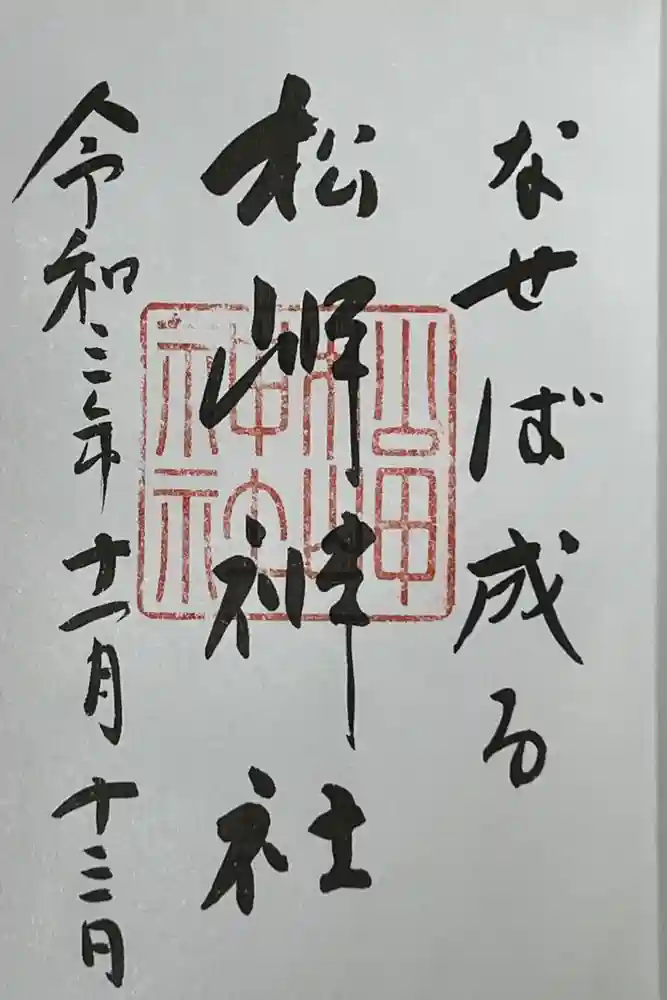 なせば成る
松岬神社
松岬
神社
令和三年十一月十三日